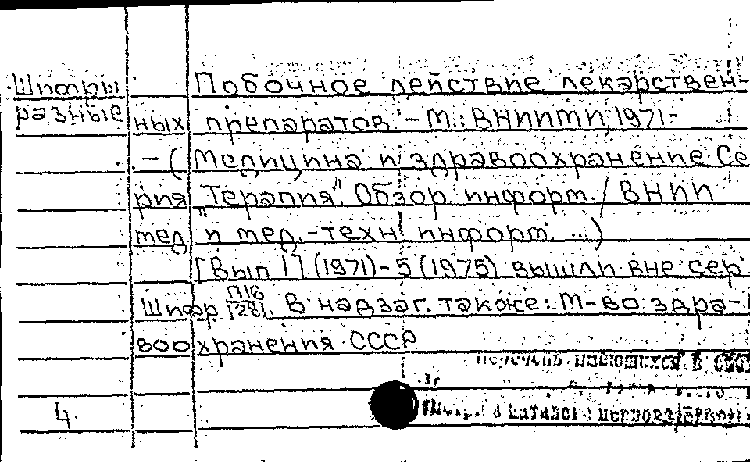 Шифры Побочное действие лекарствен-
разные ных препаратов. – М.: ВНИИМИ, 1971-
– (Медицина и здравоохранение. Се
рия "Терапия". Обзор. информ. / ВНИИ
мед. и мед.-техн. информ. ...)
[Вып 1] (1971)-5 (1975) вышли вне сер
Шифр П16/1281. В надзаг. также: М-во здра-
воохранения СССР
Перечень имеющихся в
4.